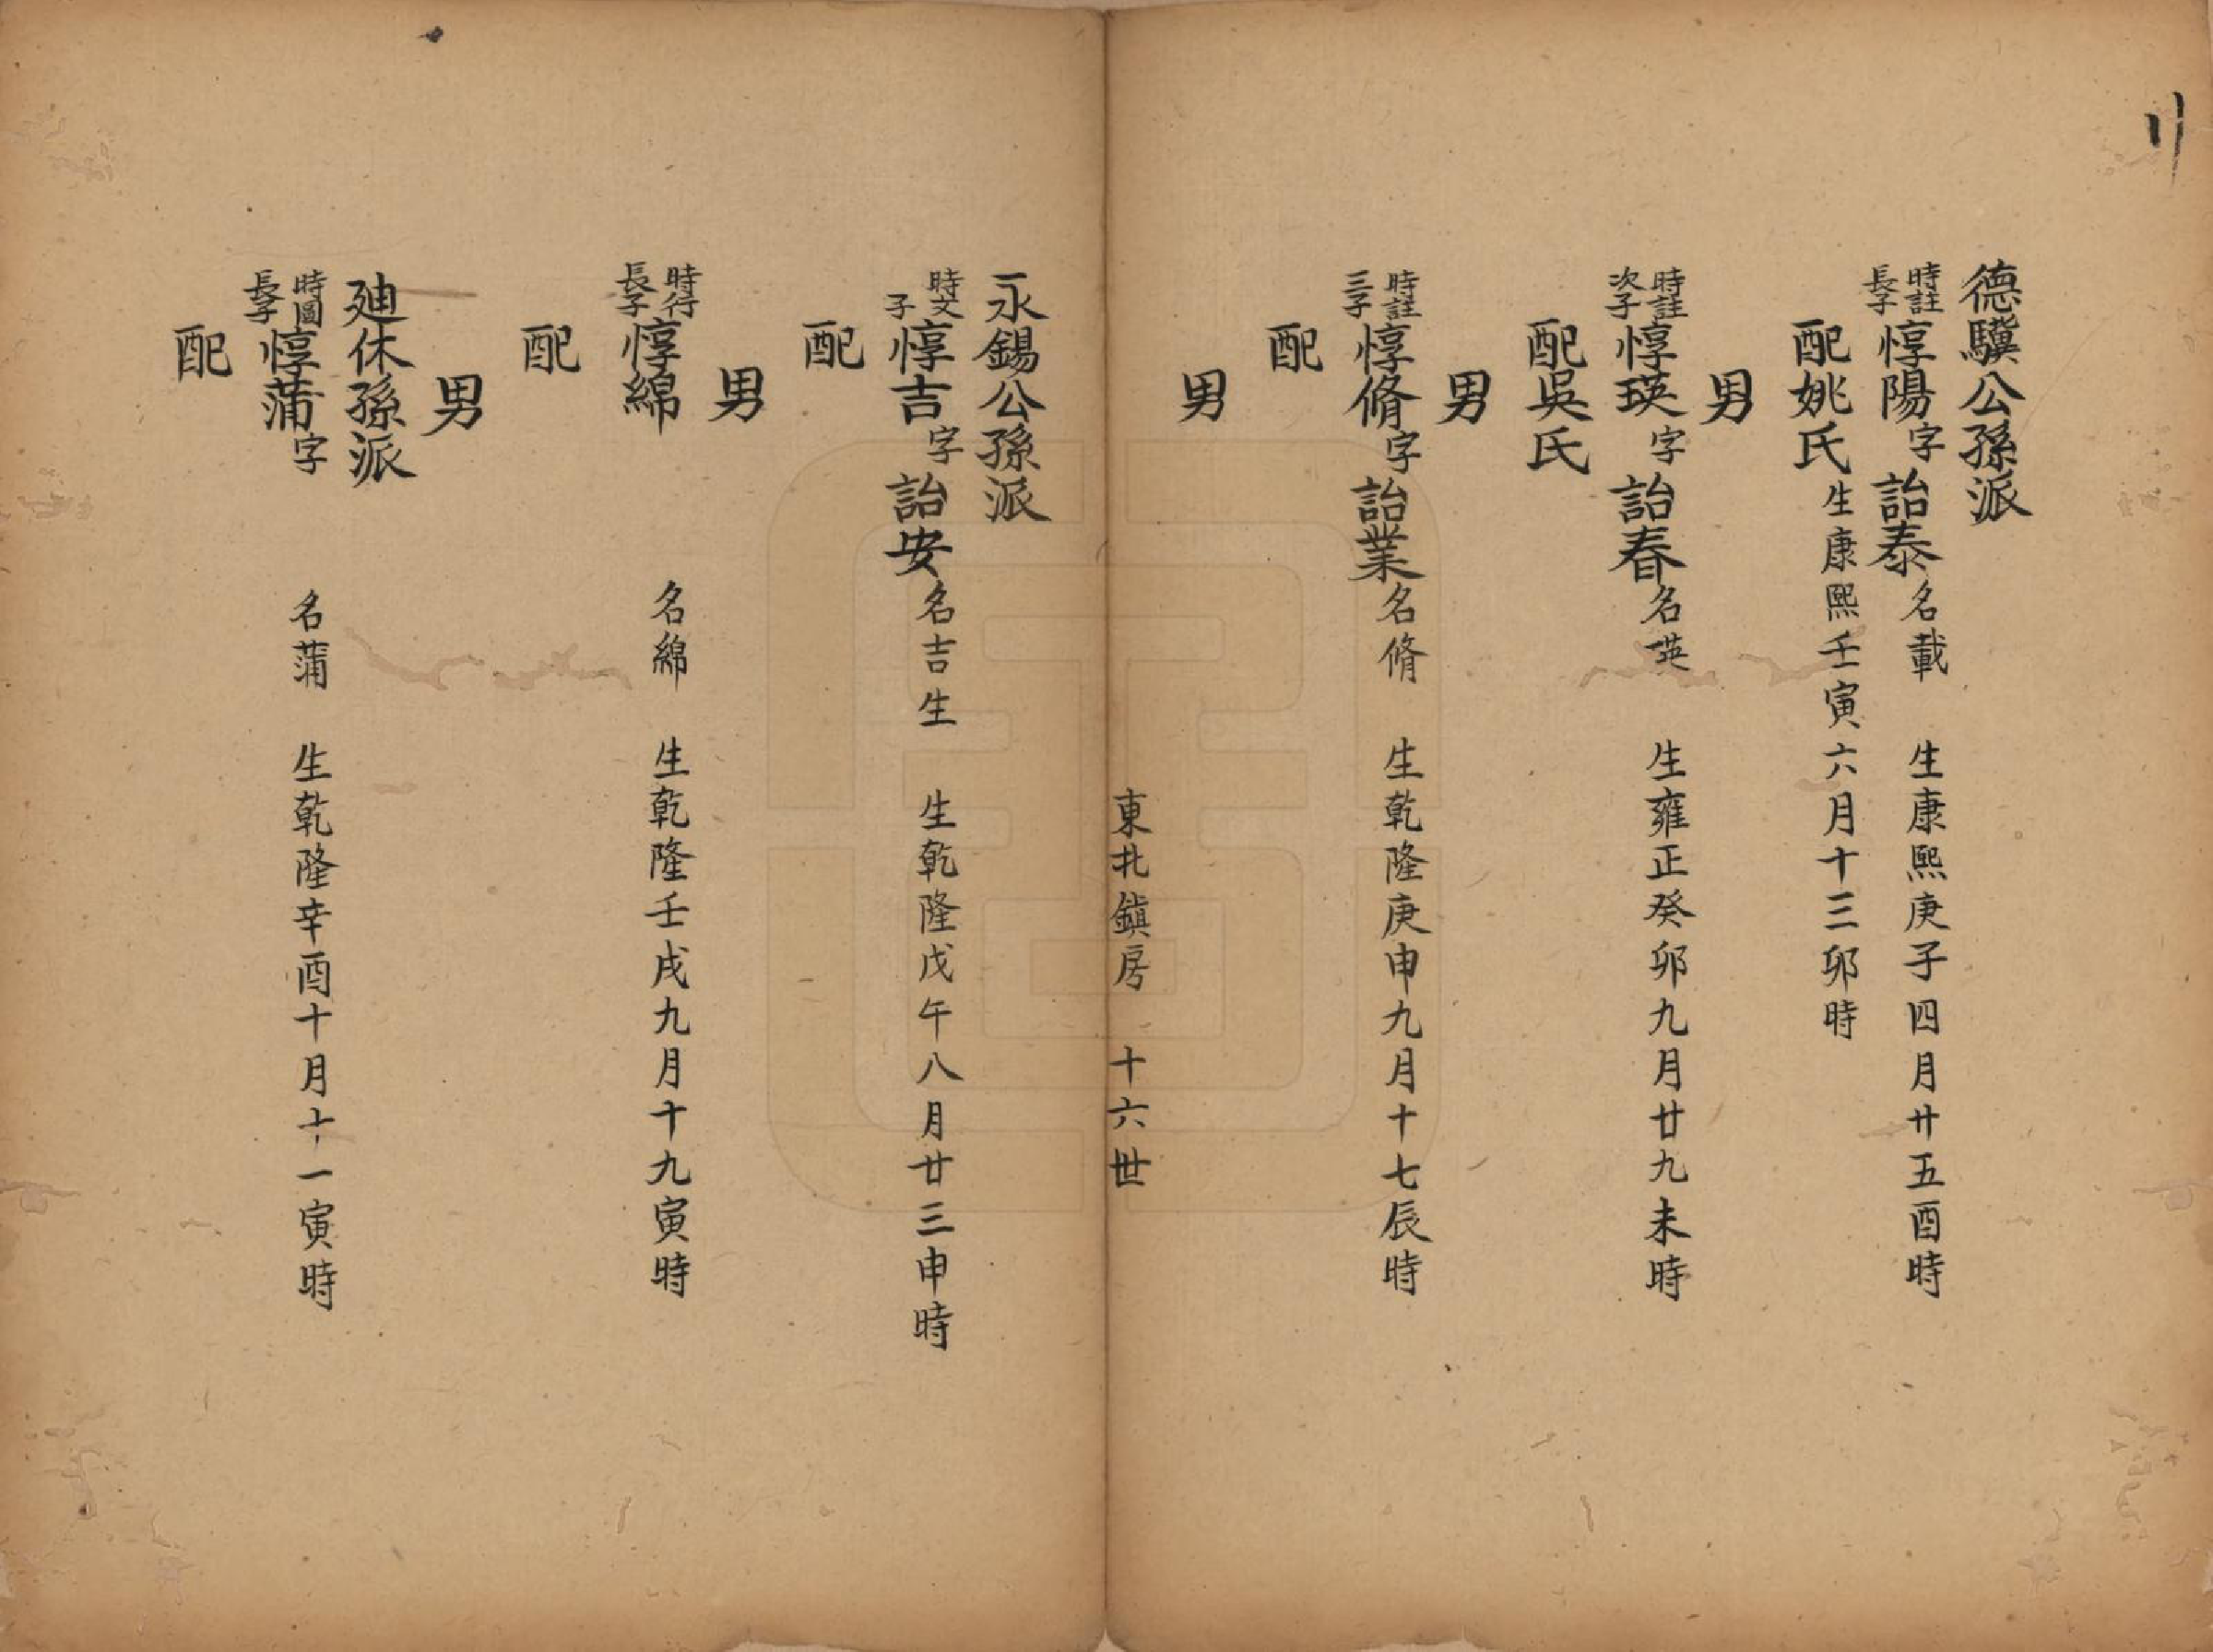 德驥公孫派
時註長子惇陽字詒泰名載 生康熙庚子四月廾五酉時
配姚氏生康熙壬寅六月十三卯時
男
時註次子惇瑛字詒春名英 生雍正癸卯九月廿九未時
配吳氏
男
時註三子惇脩字詒業名脩 生乾隆庚申九月十七辰時
配
男
東北鎮房 十六世
永錫公孫派
時文子惇吉字詒安名吉生 生乾隆戊午八月廿三申時
配
男
時行長子惇綿 名綿 生乾隆壬戌九月十九寅時
配
男
廸休孫派
時圖長子惇蒲字 名蒲 生乾隆辛酉十月十一寅時
配